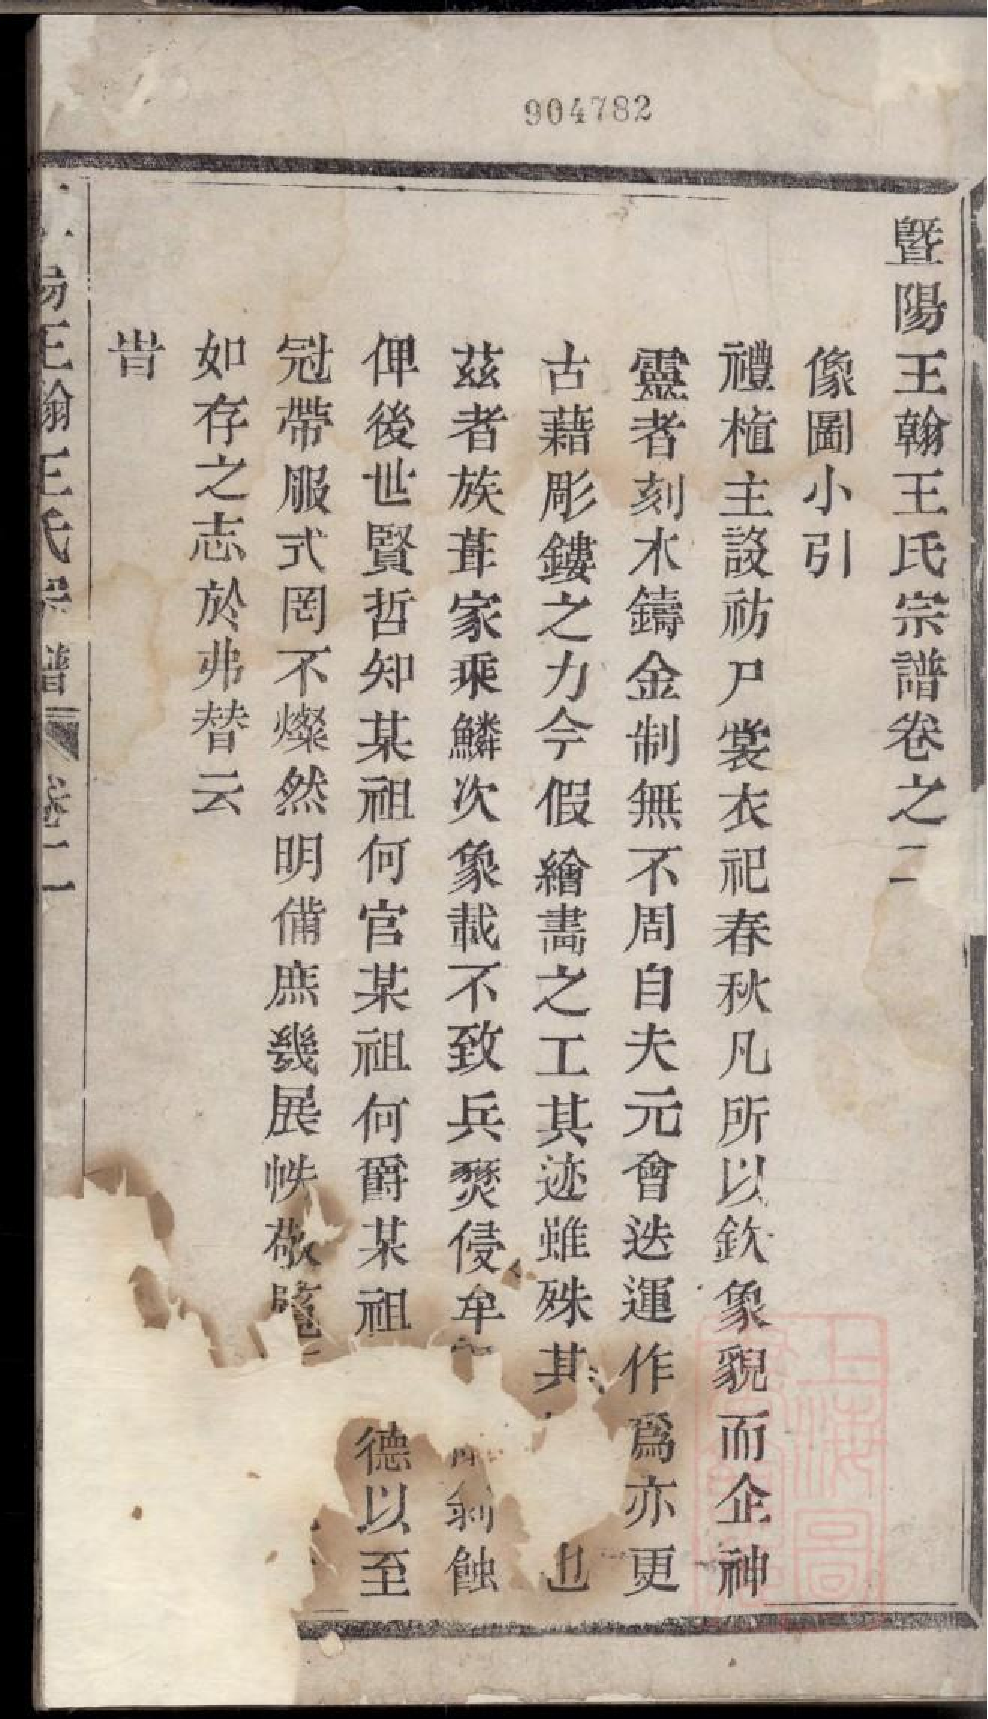 904782
暨陽王翰王氏宗譜卷之二
像圖小引
禮植主設祊尸裳衣祀春秋凡所以欽象貌而企神
靈者刻木鑄金制無不周自夫元會迭運作爲亦更
古藉彫鏤之力今假繪畵之工其迹雖殊其也
茲者族葺家乘鱗次象載不致兵燹侵牟剝蝕
俾後世賢哲知某祖何官某祖何爵某祖德以至
冠帶服式罔不燦然明備庶幾展帙敬
如存之志於弗替云
旹
王翰王氏宗譜 卷二
上海圖